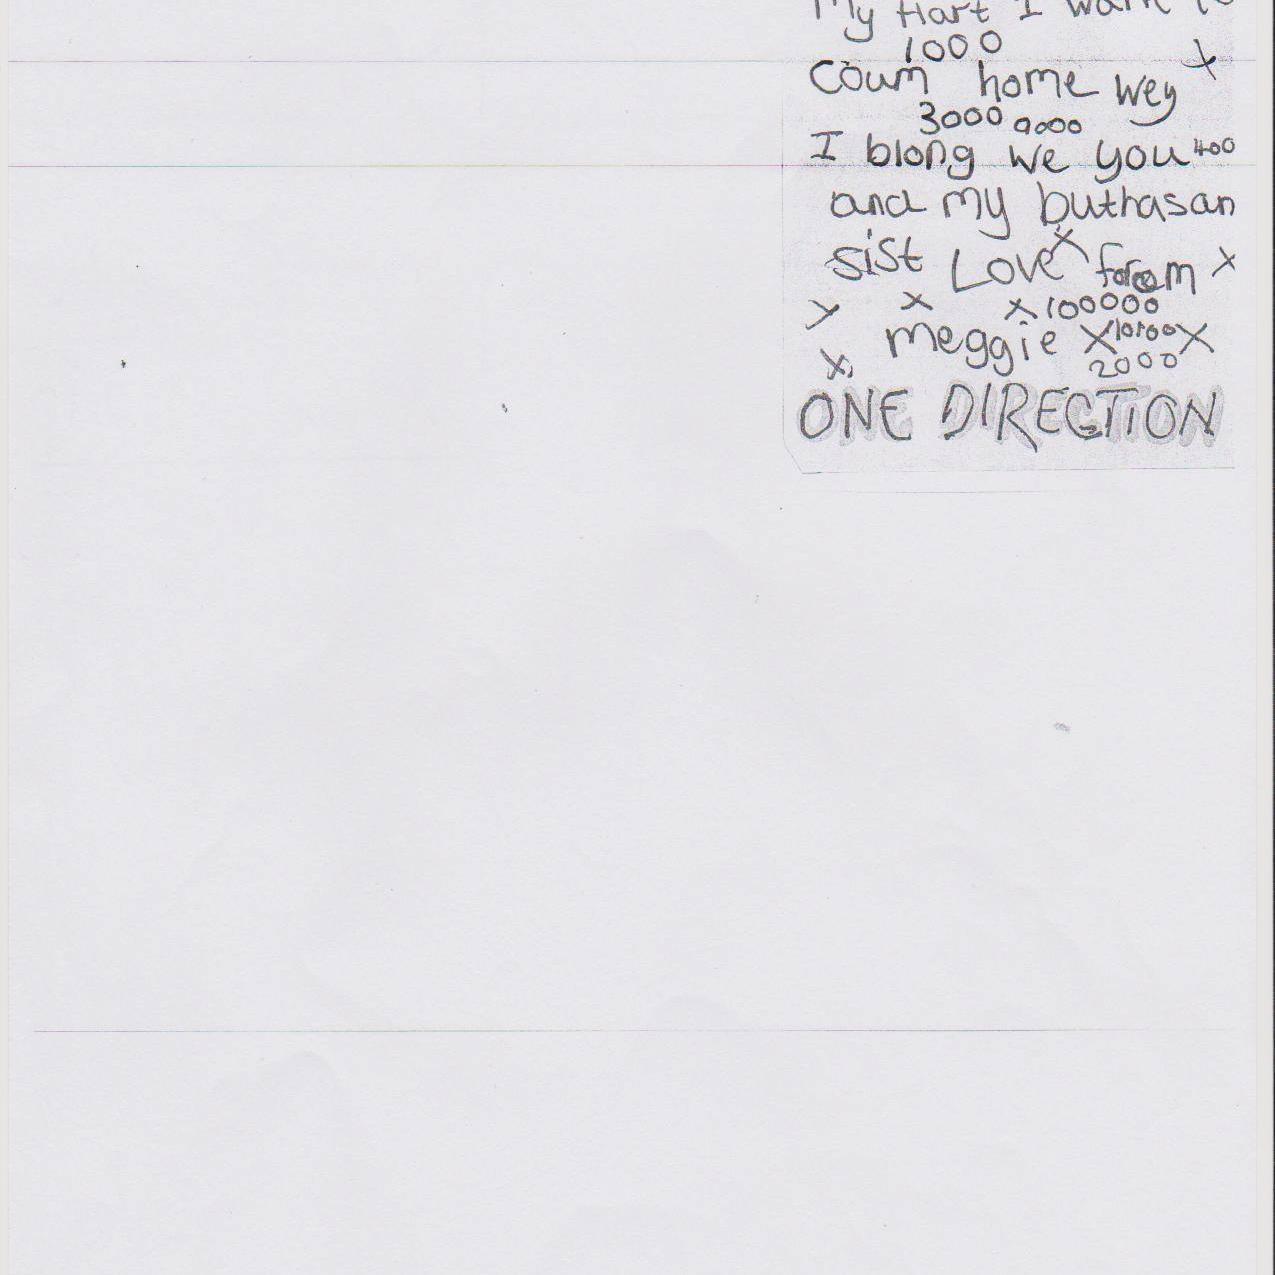 My Hart I want to
1000
Coum home wey x
3000 9000
I blong we you 400
and my buthasan
sist Love x forom x
x x x 100000
meggie x 10100 x
x 2000
ONE DIRECTION